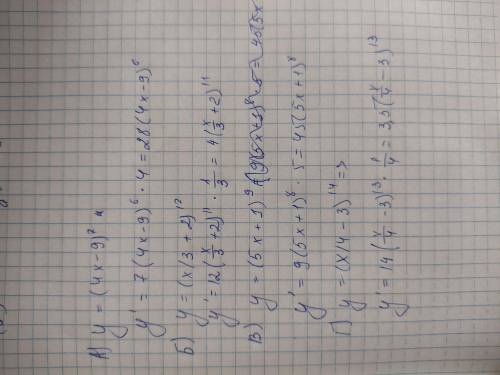 А) y = (4x-9)⁷
y' = 7(4x-9)⁶ · 4 = 28(4x-9)⁶
Б) y = (x/3+2)¹²
y' = 12(x/3+2)¹¹ · 1/3 = 4(x/3+2)¹¹
В) y = (5x+1)⁹
y' = 9(5x+1)⁸ · 5 = 45(5x+1)⁸
Г) y = (x/4-3)¹⁴ =>
y' = 14(x/4-3)¹³ · 1/4 = 3,5(x/4-3)¹³